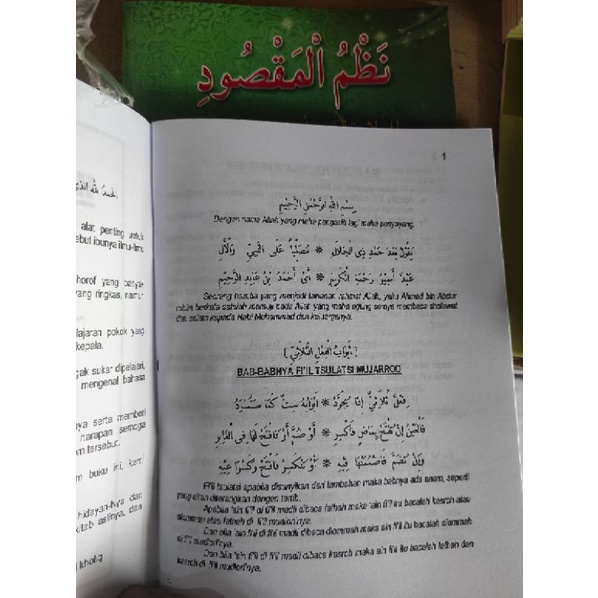 نَظْمُ الْمَقْصُودِ
1
بِسْمِ اللهِ الرَّحْمٰنِ الرَّحِيْمِ
Dengan nama Allah yang maha pengasih lagi maha penyayang
يَقُوْلُ بَعْدَ حَمْدِ ذِي الْجَلَالِ * مُصَلِّيًا عَلَى النَّبِيِّ وَالْآلِ
عَبْدٌ أَسِيْرُ رَحْمَةِ الْكَرِيْمِ * أَيْ أَحْمَدُ بْنُ عَابِدِ الرَّحِيْمِ
Seorang hamba yang menjadi tawanan rahmat Allah, yaitu Ahmad bin Abdur
rohim berkata setelah memuji pada Allah yang maha agung seraya membaca sholawat
dan salam kepada Nabi Muhammad dan keluarganya.
[أَبْوَابُ الْفِعْلِ الثُّلَاثِيِّ]
BAB-BABNYA FI'IL TSULATSI MUJARROD
فِعْلٌ ثُلَاثِيٌّ إِذَا يُجَرَّدُ * أَبْوَابُهُ سِتٌّ كَمَا سَتُسْرَدُ
فَالْعَيْنُ إِنْ تُفْتَحْ بِمَاضٍ فَاكْسِرِ * أَوْ ضُمَّ أَوْ فَافْتَحْ لَهَا فِى الْغَابِرِ
وَإِنْ تُضَمَّ فَاضْمُمَنْهَا فِيْهِ * أَوْ تَنْكَسِرْ فَافْتَحْ وَكَسْرًا عِيْهِ
Fi'il tsulatsi apabila disunyikan dari tambahan maka babnya ada enam, seperti
yang akan diterangkan dengan tertib.
Apabila 'ain fi'il di fi'il madli dibaca fathah maka 'ain fi'il itu bacalah kasroh atau
dlommah atau fathah di fi'il mudlori'nya.
Dan bila 'ain fi'il di fi'il madli dibaca dlommah maka 'ain fi'il itu bacalah dlommah
di fi'il mudlori'nya.
Dan bila 'ain fi'il di fi'il madli dibaca kasroh maka 'ain fi'il itu bacalah fathah dan
kasroh di fi'il mudlori'nya.
الحمد لله الذي
alat penting untuk
ebut ibunya ilmu-ilmu
horof yang banyak
yang ringkas, namun
lajaran pokok yang
kepala.
gak sukar dipelajari,
mengenal bahasa
nya serta memberi
harapan semoga
m tersebut.
m buku ini, kami
hidayah-Nya dan
kitab aslinya, dan
kholiq